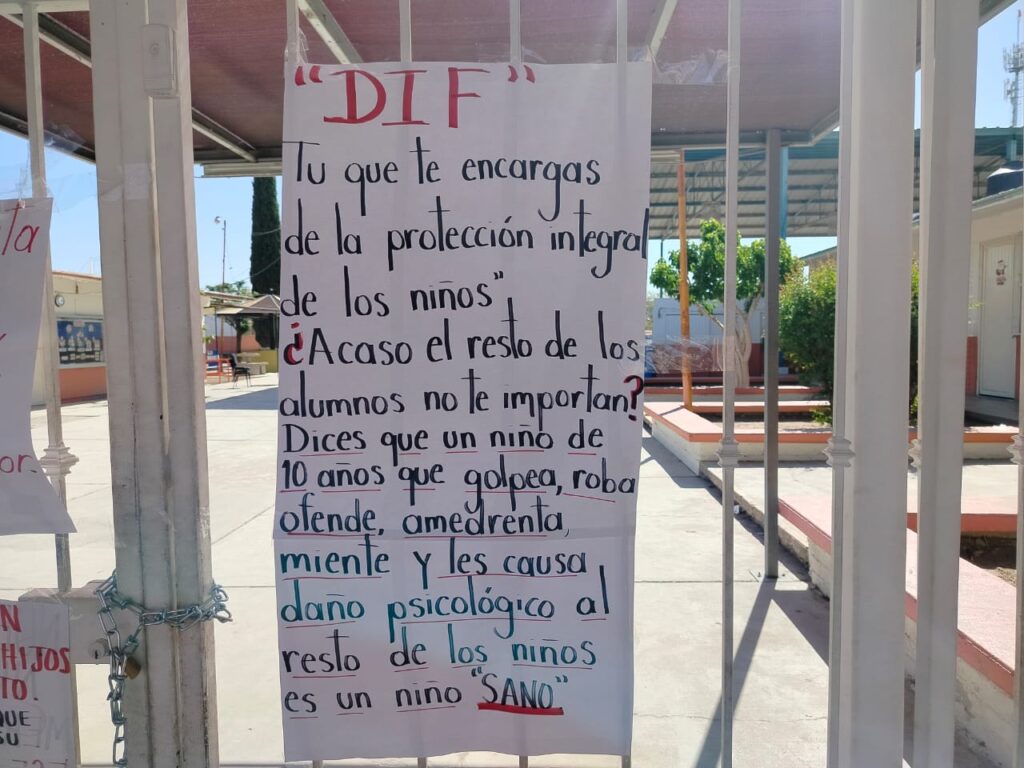 "DIF"
Tu que te encargas
de la protección integral
de los niños"
¿Acaso el resto de los
alumnos no te importan?
Dices que un niño de
10 años que golpea, roba
ofende, amedrenta,
miente y les causa
daño psicológico al
resto de los niños
es un niño "SANO"
ta
or.
N
HIJOS
TO.
QUE
SU